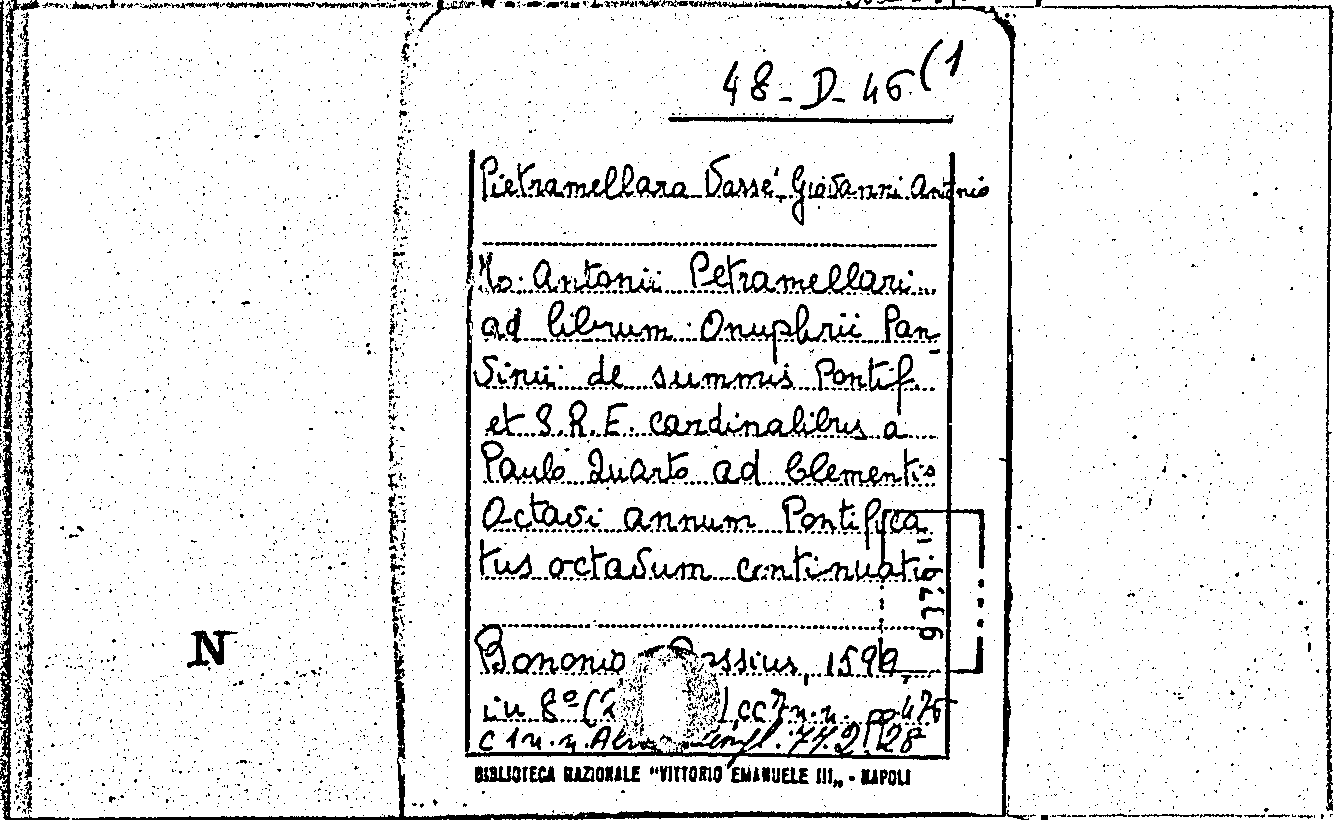 48-D-46(1
Pietramellara Vassé, Giovanni Antonio
Io. Antonii Petramellari
ad librum Onuphrii Pan-
vinii de summis Pontif.
et S.R.E. cardinalibus a
Paulo Quarto ad Clementis
Octavi annum Pontifica
tus octavum continuatio
N
Bononiae 1599,
in 8° cc7n.n. pp 476
c 1 n.n. 28
BIBLIOTECA NAZIONALE "VITTORIO EMANUELE III„ - NAPOLI